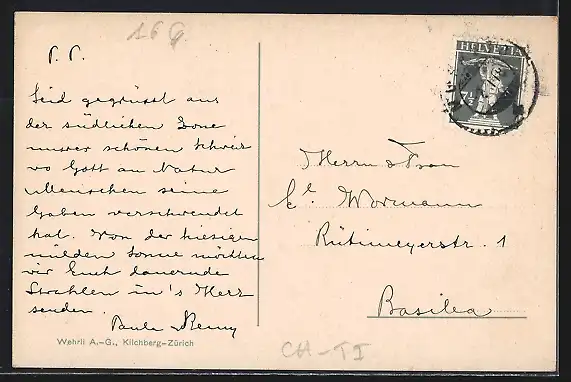 166
P. P.
Seid gegrüsst aus
der südlichen Zone
unsrer schönen Schweiz
wo Gott an Natur
u Menschen seine
Gaben verschwendet
hat. Von der hiesigen
milden Sonne möchten
wir Euch dauernde
Strahlen in's Herz
senden.
Paula
Wehrli A.-G., Kilchberg-Zürich
HELVETIA
7½
Herrn & Frau
Wormann
Rütimeyerstr. 1
Basilea
CH-TI